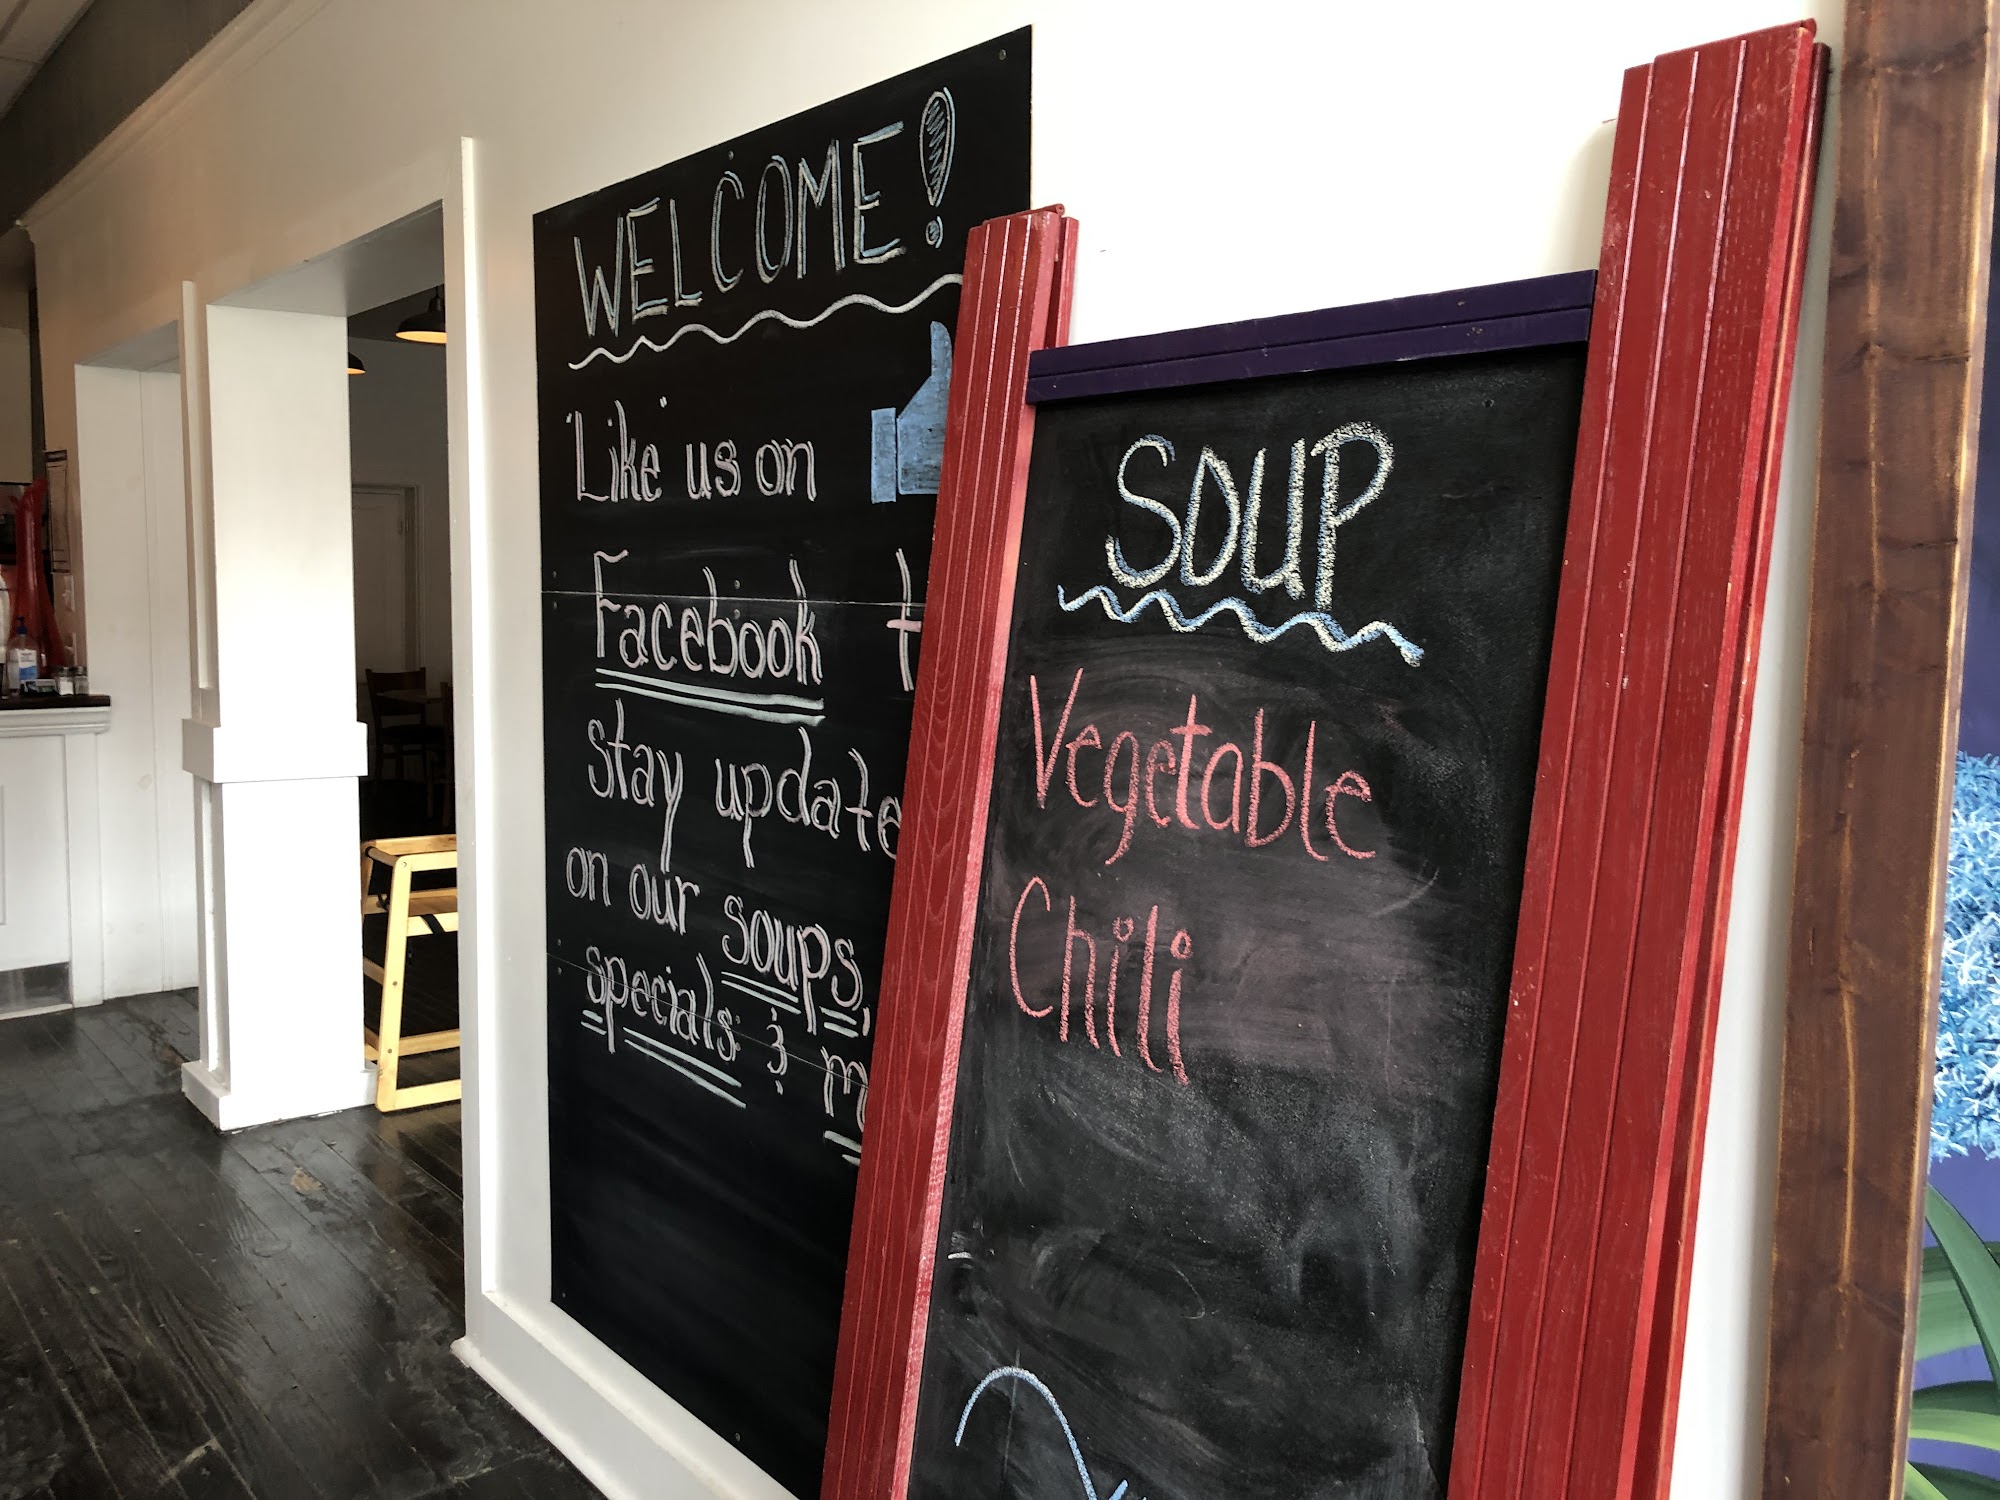 WELCOME!
"Like" us on
Facebook t
stay update
on our soups,
specials & m
SOUP
Vegetable
Chili